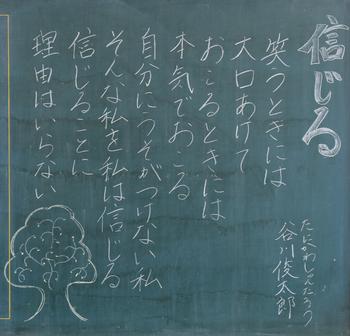 信じる
たにかわしゅんたろう
谷川俊太郎
笑うときには
大口あけて
おこるときには
本気でおこる
自分にうそがつけない私
そんな私を私は信じる
信じることに
理由はいらない